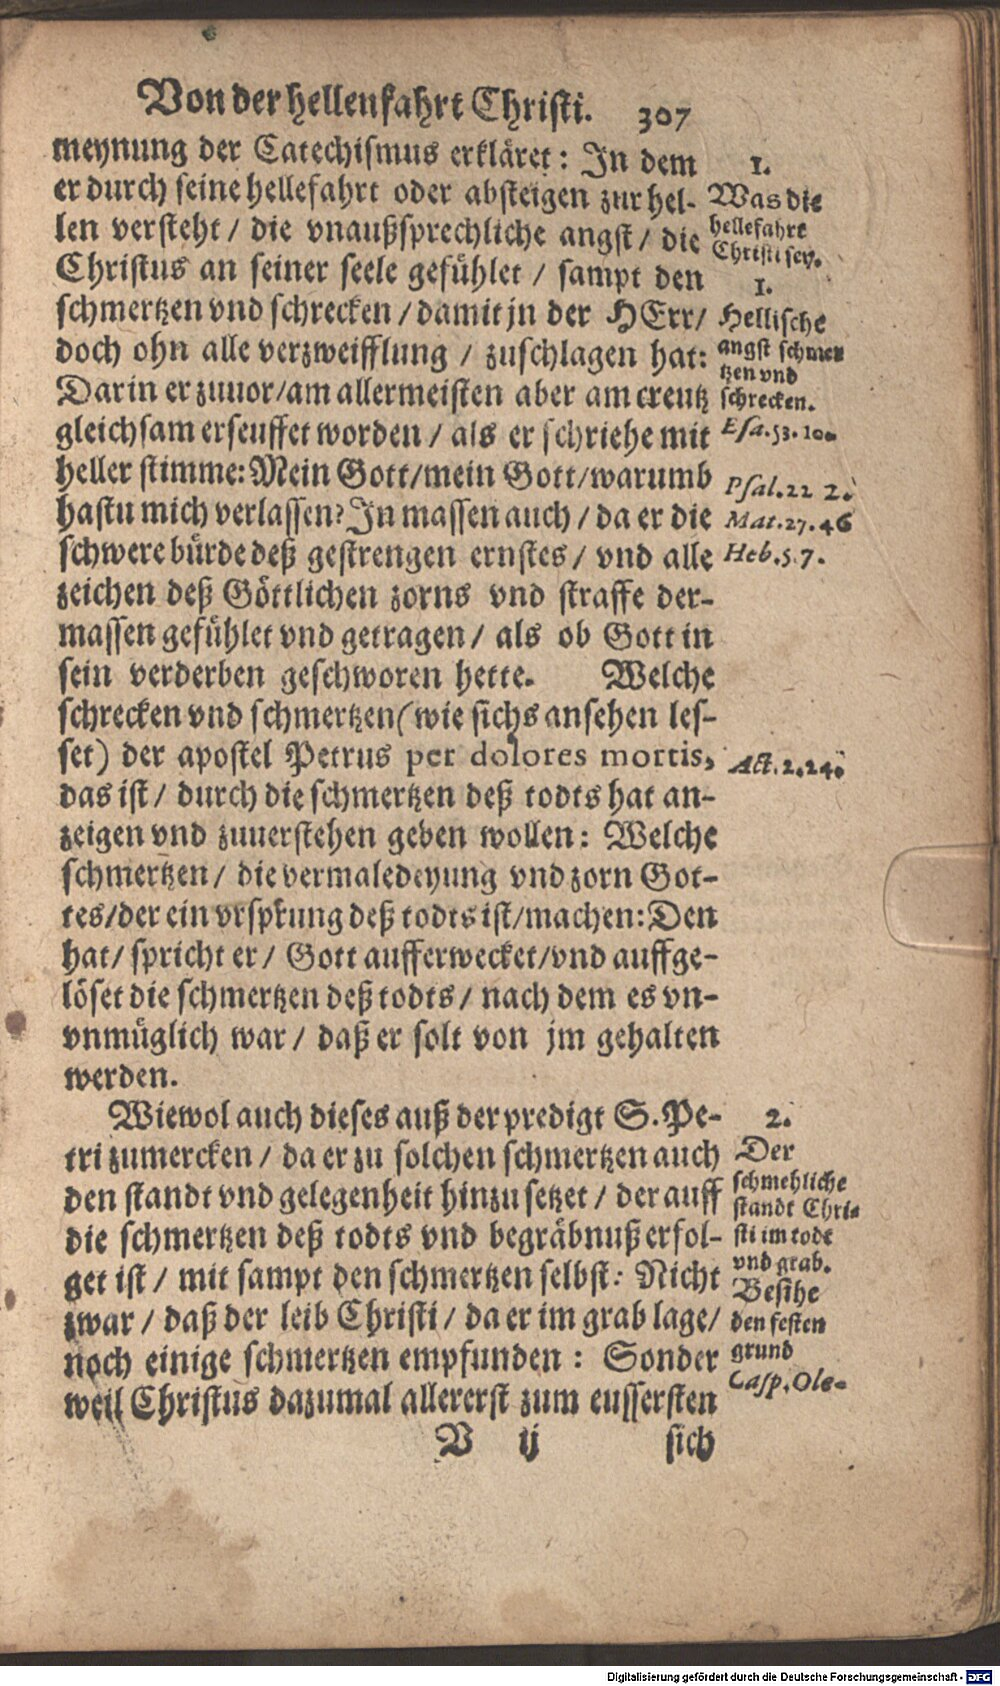 Von der hellenfahrt Christi. 307
meynung der Catechismus erkläret: In dem
er durch seine hellefahrt oder absteigen zur hel-
len versteht / die vnaußsprechliche angst / die
Christus an seiner seele gefühlet / sampt den
schmertzen vnd schrecken / damit jn der HErr /
doch ohn alle verzweifflung / zuschlagen hat:
Darin er zuuor / am allermeisten aber am creutz
gleichsam erseuffet worden / als er schriehe mit
heller stimme: Mein Gott / mein Gott / warumb
hastu mich verlassen? In massen auch / da er die
schwere bürde deß gestrengen ernstes / vnd alle
zeichen deß Göttlichen zorns vnd straffe der-
massen gefühlet vnd getragen / als ob Gott in
sein verderben geschworen hette. Welche
schrecken vnd schmertzen (wie sichs ansehen les-
set) der apostel Petrus per dolores mortis,
das ist / durch die schmertzen deß todts hat an-
zeigen vnd zuuerstehen geben wollen: Welche
schmertzen / die vermaledeyung vnd zorn Got-
tes / der ein vrsprung deß todts ist / machen: Den
hat / spricht er / Gott aufferwecket / vnd auffge-
löset die schmertzen deß todts / nach dem es vn-
vnmüglich war / daß er solt von jm gehalten
werden.
Wiewol auch dieses auß der predigt S. Pe-
tri zumercken / da er zu solchen schmertzen auch
den standt vnd gelegenheit hinzu setzet / der auff
die schmertzen deß todts vnd begräbnuß erfol-
get ist / mit sampt den schmertzen selbst: Nicht
zwar / daß der leib Christi / da er im grab lage /
noch einige schmertzen empfunden: Sonder
weil Christus dazumal allererst zum eussersten
V ij sich
1.
Was die
hellefahrt
Christi sey.
1.
Hellische
angst schmer
tzen vnd
schrecken.
Esa. 53. 10.
Psal. 22 2.
Mat. 27. 46
Heb. 5. 7.
Act. 2. 24.
2.
Der
schmehliche
standt Chri-
sti im tode
vnd grab.
Besihe
den festen
grund
Casp. Ole-
Digitalisierung gefördert durch die Deutsche Forschungsgemeinschaft - DFG